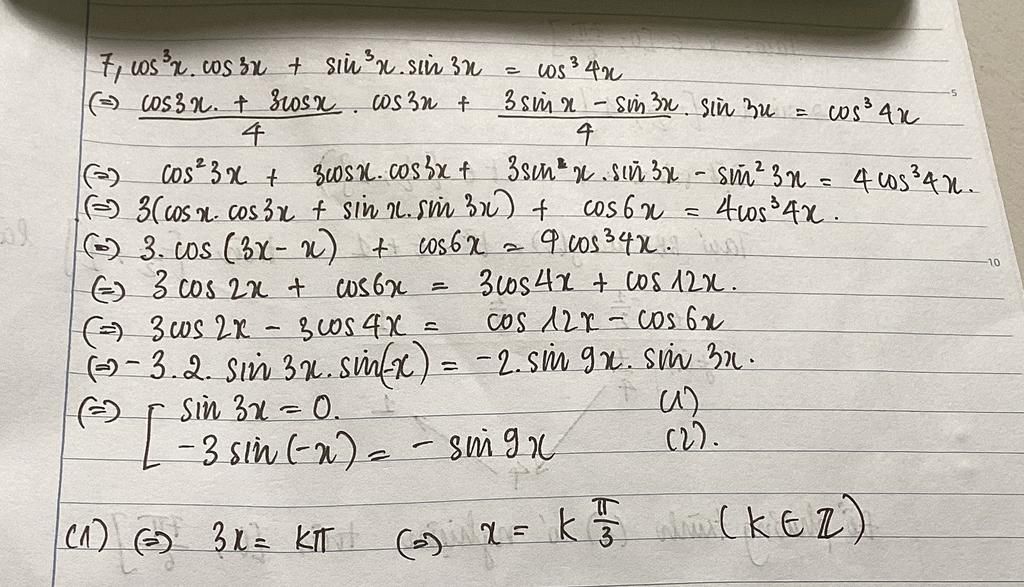 7, cos³x. cos 3x + sin³x. sin 3x = cos³ 4x
(=) (cos3x. + 3cosx)/4 . cos 3x + (3 sin x - sin 3x)/4 . sin 3x = cos³ 4x
(=) cos² 3x + 3cosx. cos 3x + 3sin x. sin 3x - sin² 3x = 4 cos³ 4x.
(=) 3(cosx. cos 3x + sin x. sin 3x) + cos 6x = 4cos³ 4x.
(=) 3. cos (3x - x) + cos6x = 4 cos³ 4x.
(=) 3 cos 2x + cos6x = 3cos 4x + cos 12x.
(=) 3cos 2x - 3cos 4x = cos 12x - cos 6x
(=) - 3. 2. sin 3x. sin(-x) = -2. sin 9x. sin 3x.
(=) [ sin 3x = 0. (1)
-3 sin (-x) = - sin 9x (2).
(1) (=) 3x = kπ (=) x = k π/3 (k ∈ Z)
5
10